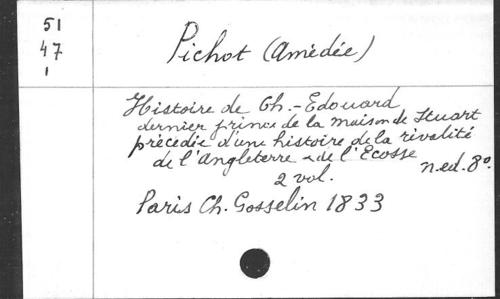 51
47
1
Pichot (Amédée)
Histoire de Ch.-Edouard,
dernier prince de la maison de Stuart
précédée d'une histoire de la rivalité
de l'Angleterre et de l'Ecosse
n.ed. 8°.
2 vol.
Paris Ch. Gosselin 1833